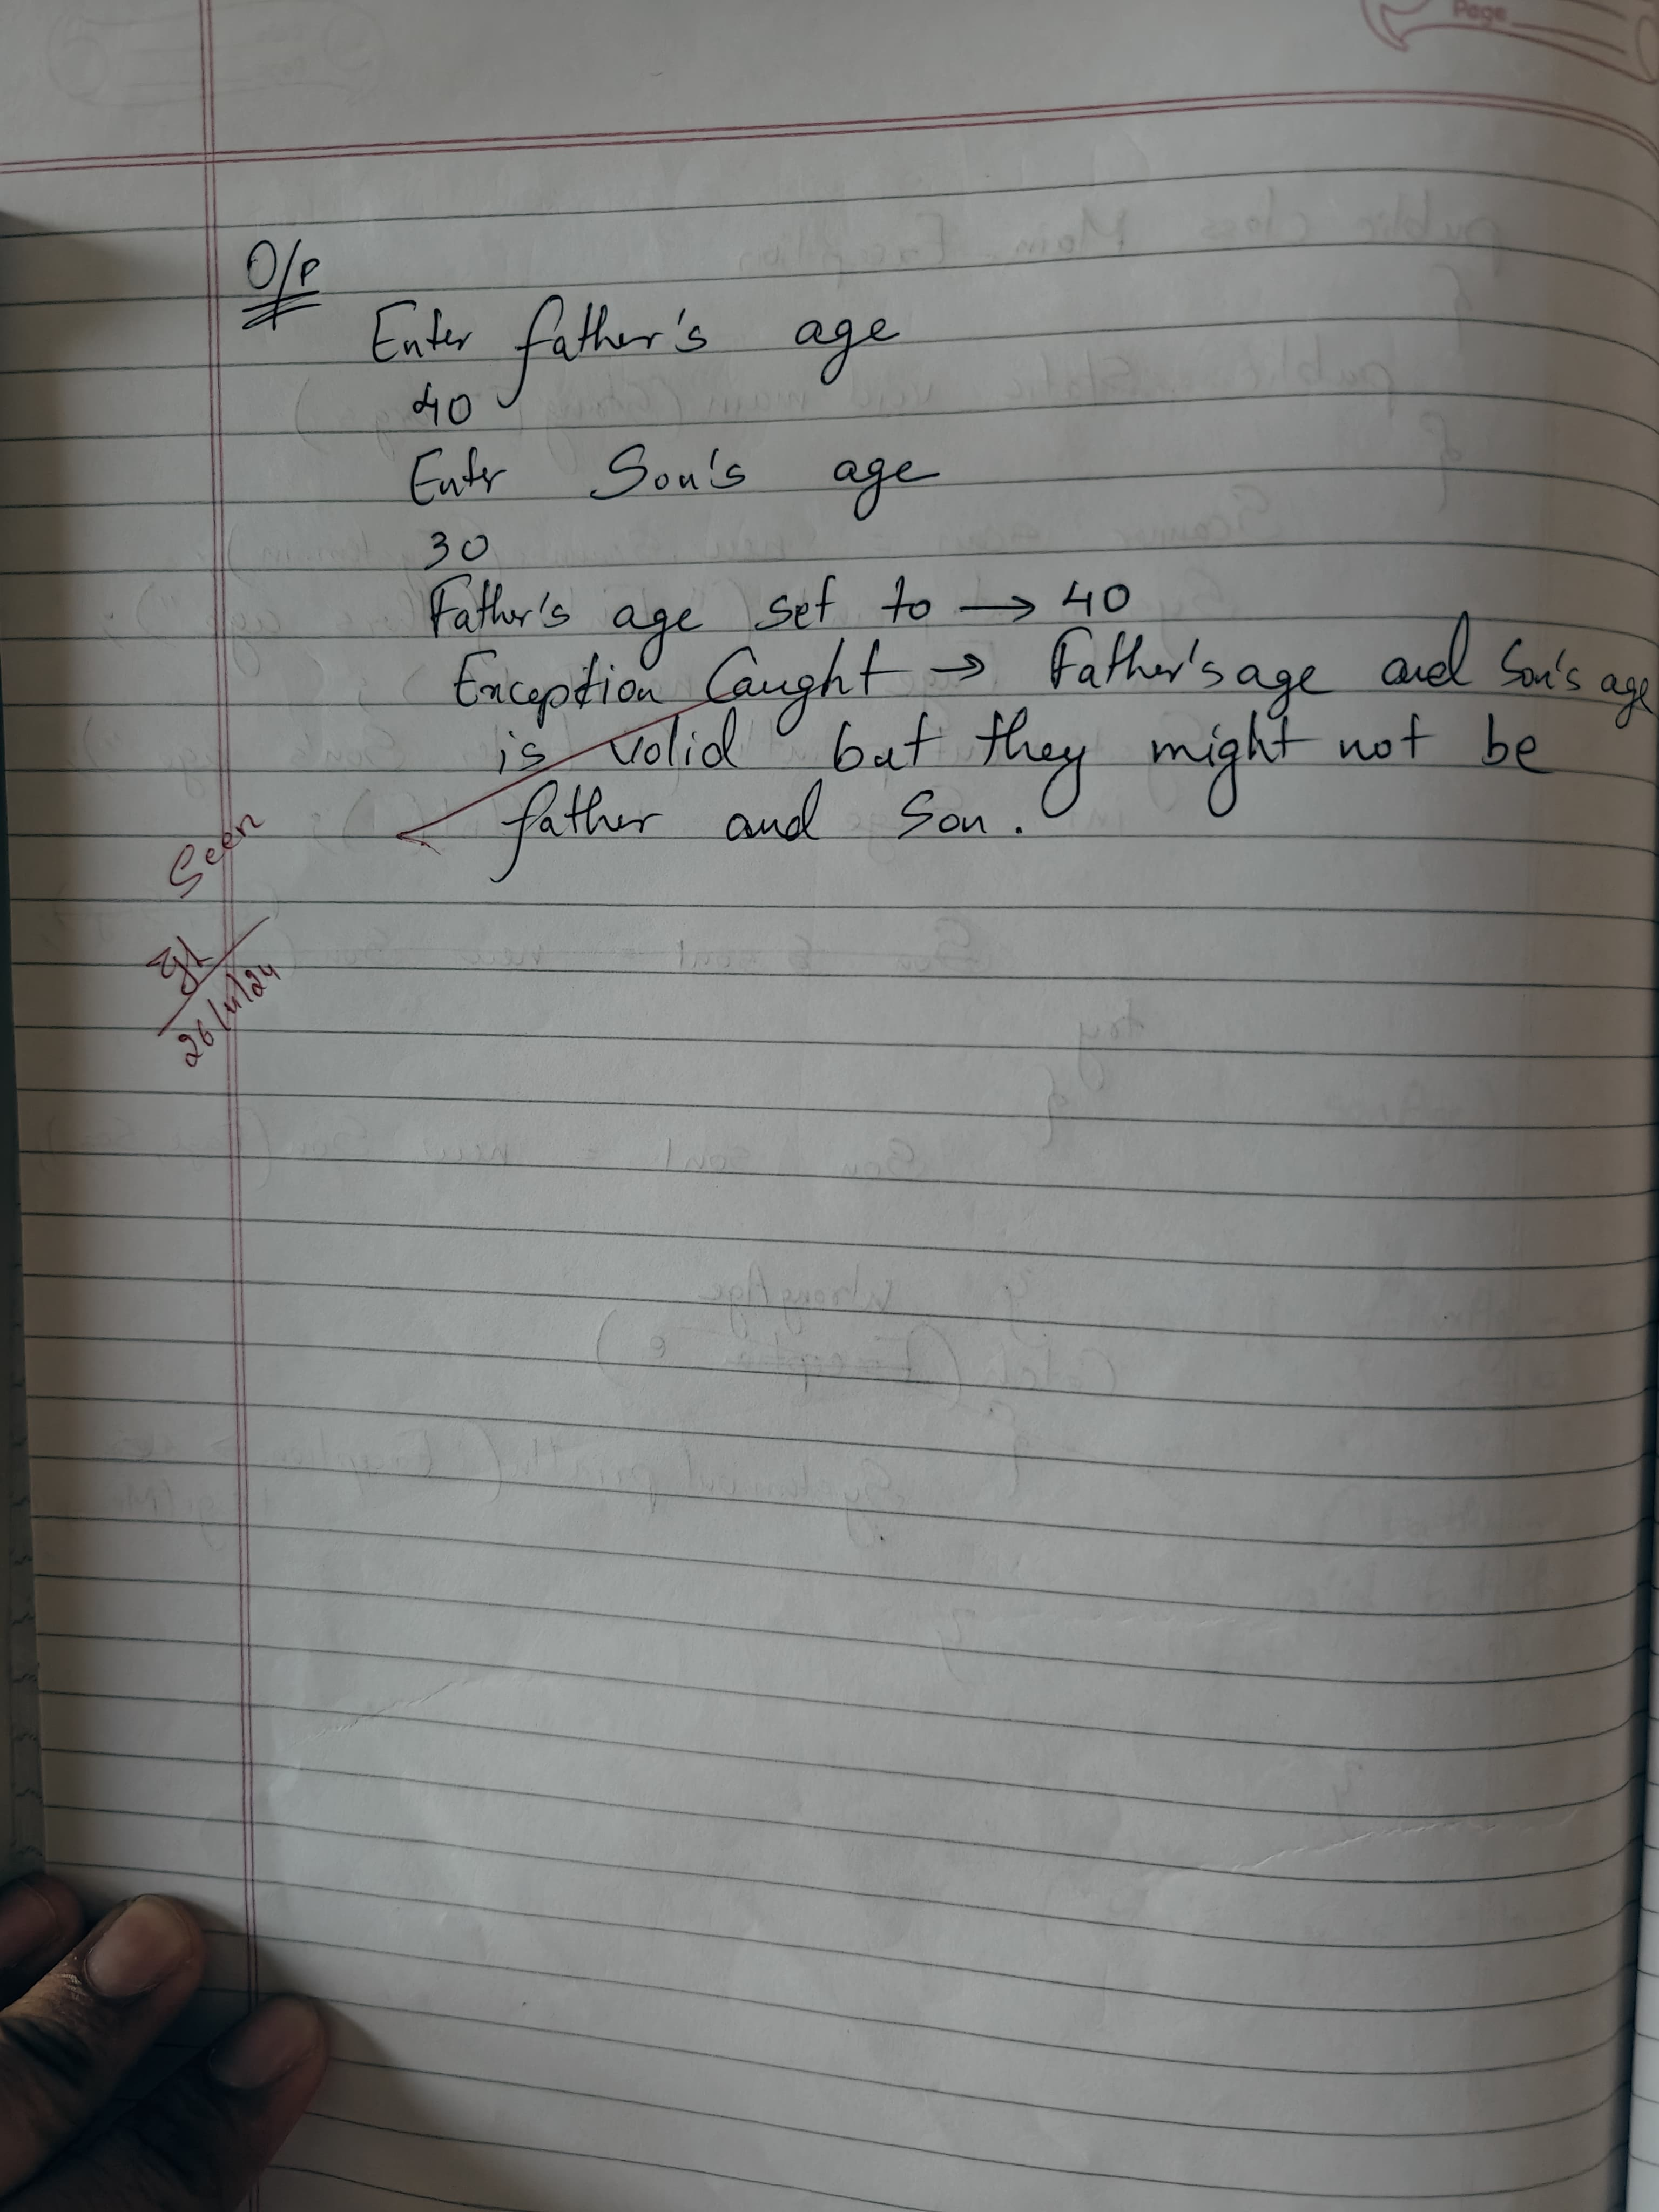 Page
O/P
Enter father's age
40
Enter Son's age
30
Father's age set to → 40
Exception Caught → Father's age and Son's age
is valid but they might not be
father and Son.
Seen
26/11/24